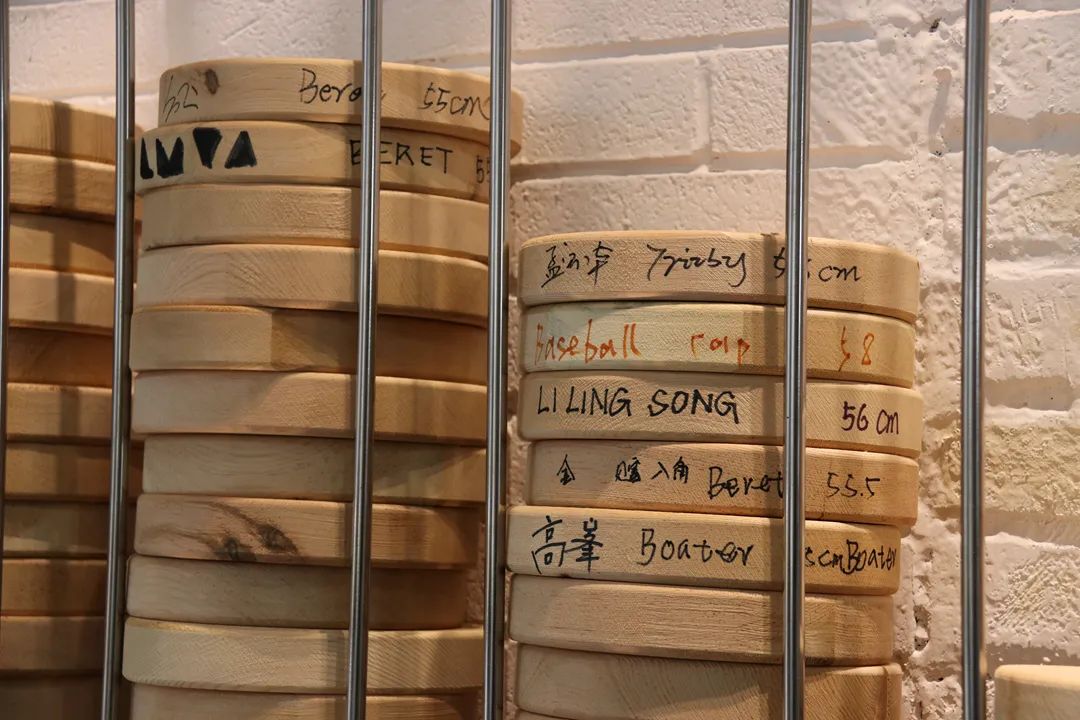 Bere 55cm
BERET 55
孟云华 Trizby 5 cm
Baseball cap 58
LI LING SONG 56 cm
金 入角 Beret 53.5
高峯 Boater 5cm Boater